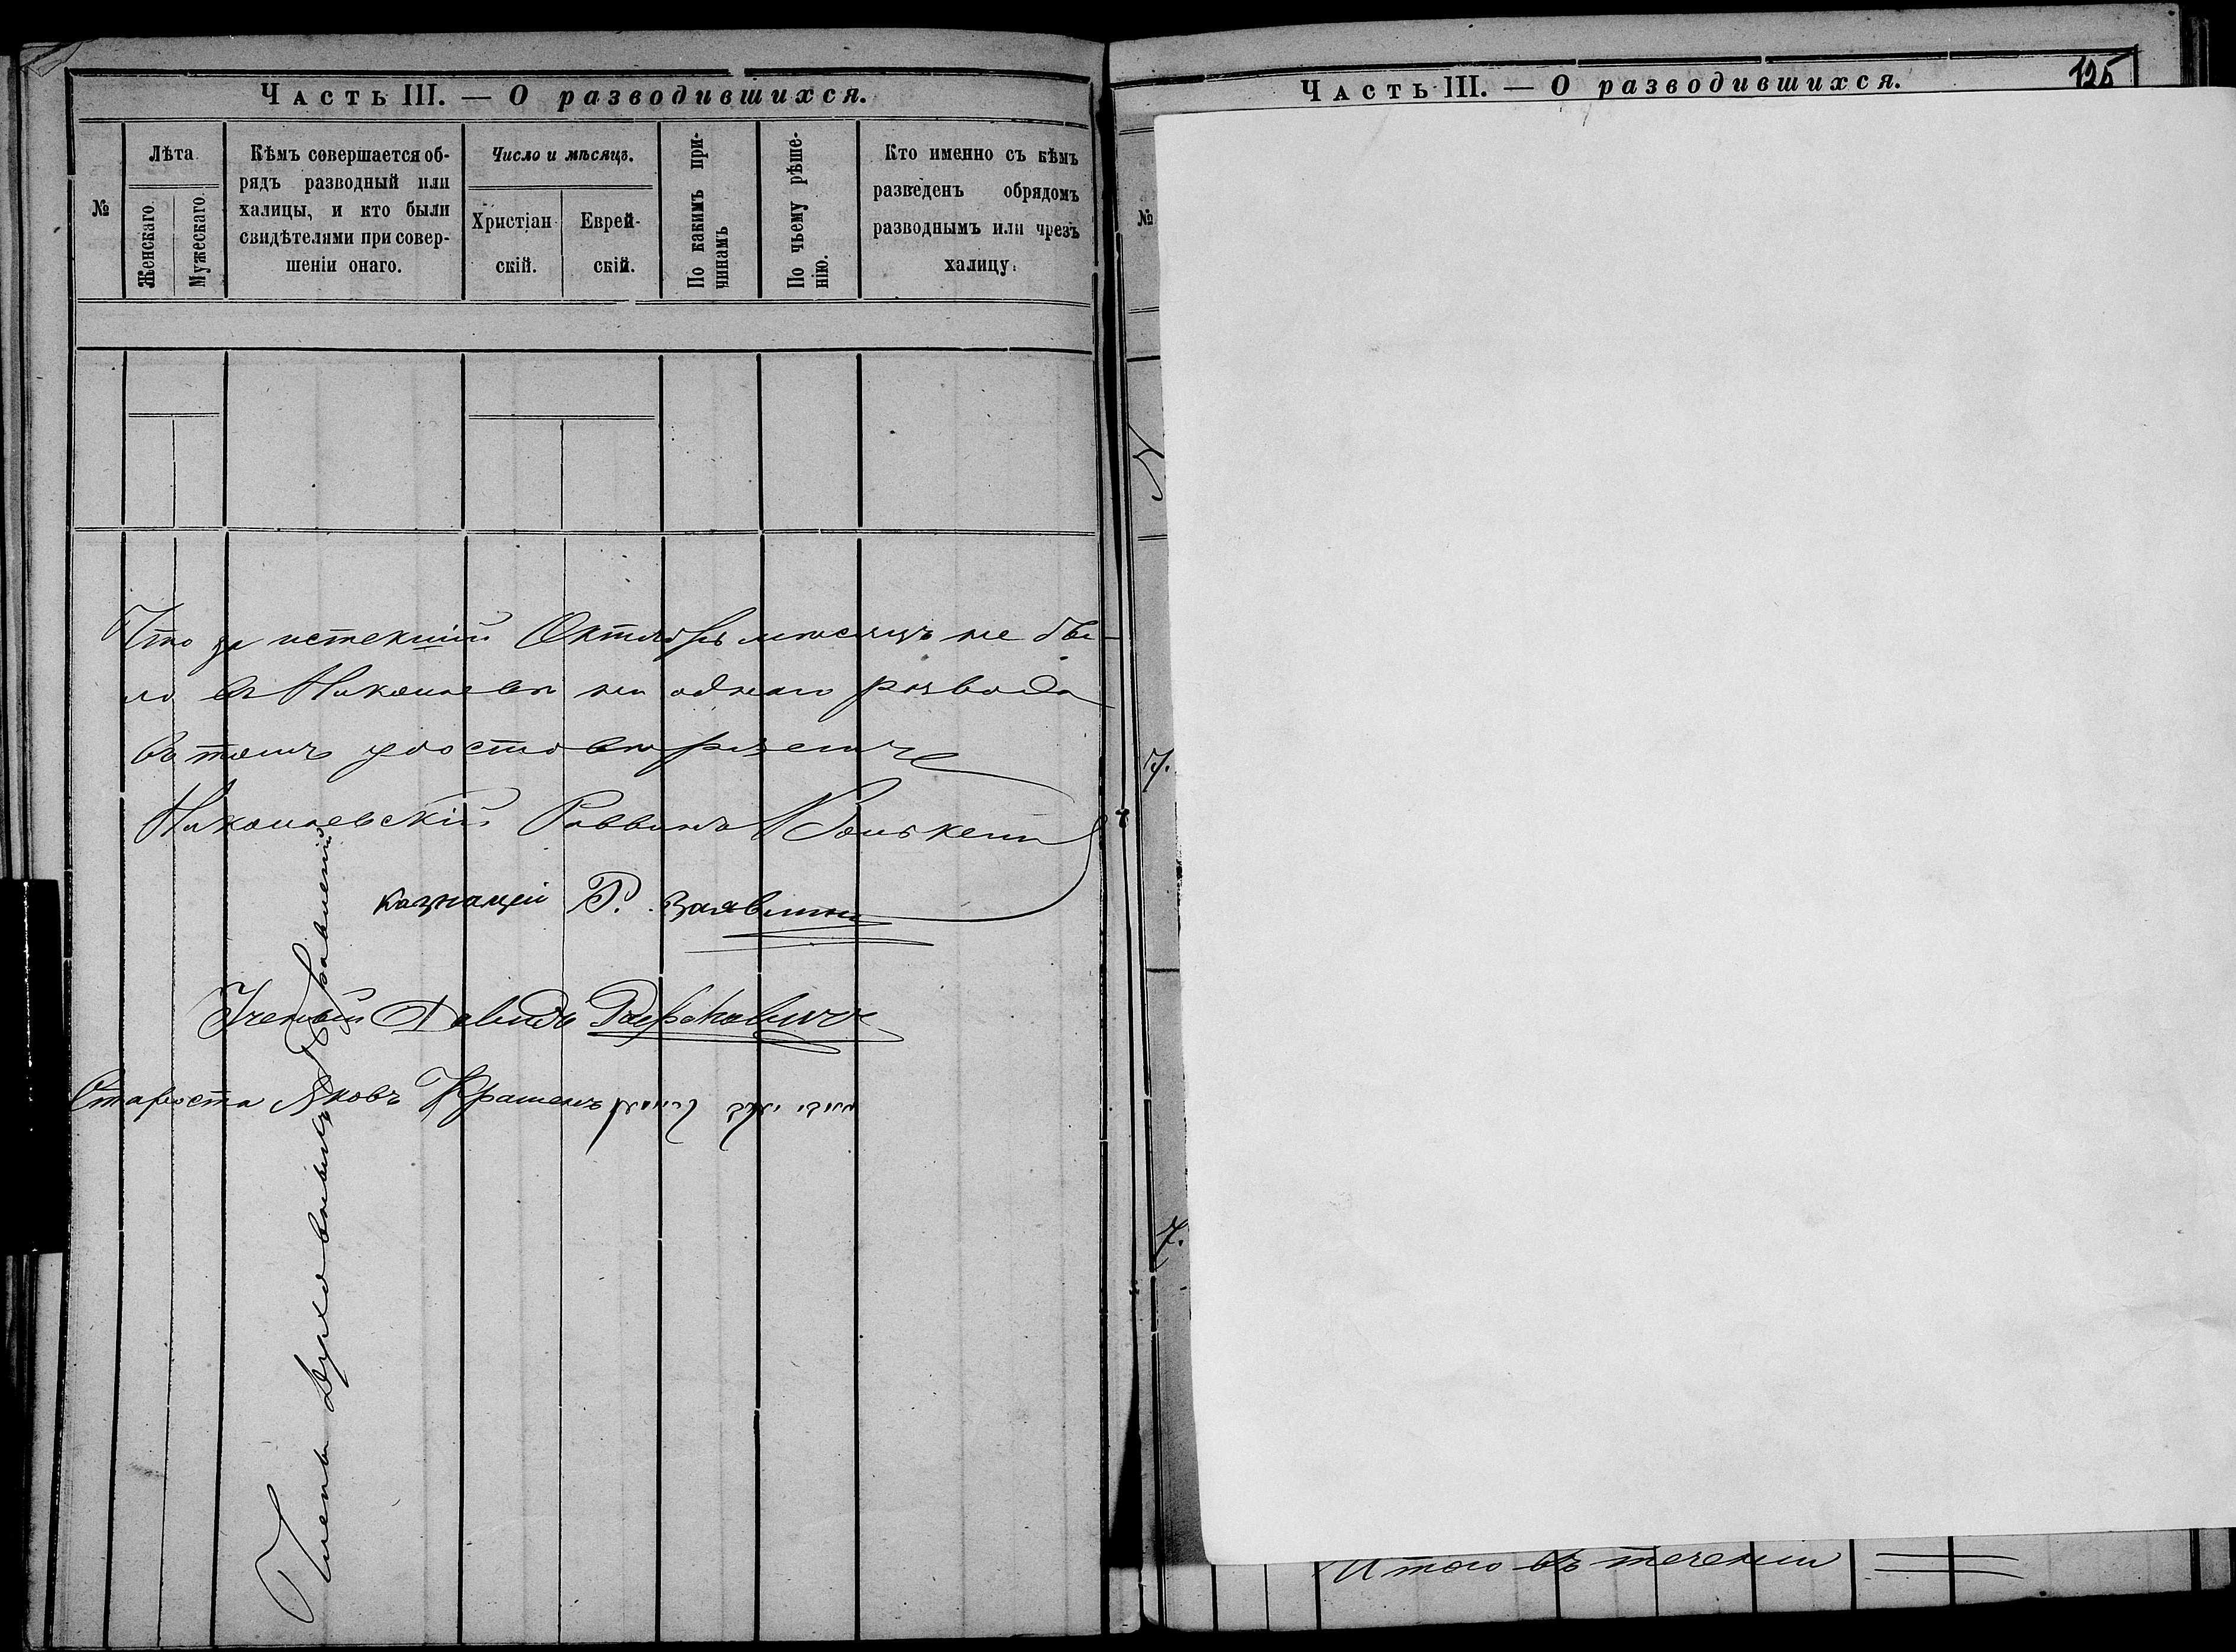 Часть III. — О разводившихся.
№
Лѣта
Женскаго.
Мужескаго.
Кѣмъ совершается об-
рядъ разводный или
халицы, и кто были
свидѣтелями при совер-
шеніи онаго.
Число и мѣсяцъ.
Христіан-
скій.
Еврей-
скій.
По какимъ при-
чинамъ
По чьему рѣше-
нію.
Кто именно съ кѣмъ
разведенъ обрядомъ
разводнымъ или чрезъ
халицу.
Что за истекшій Октябрь мѣсяцъ не бы-
ло въ Николаевѣ ни одного развода
въ томъ удостовѣряемъ
Николаевскій Раввинъ
казначей
Ученый Давидъ
Староста Яковъ
Члены Духовнаго Правленія
Часть III. — О разводившихся.
125
№
7.
Итого въ теченіи